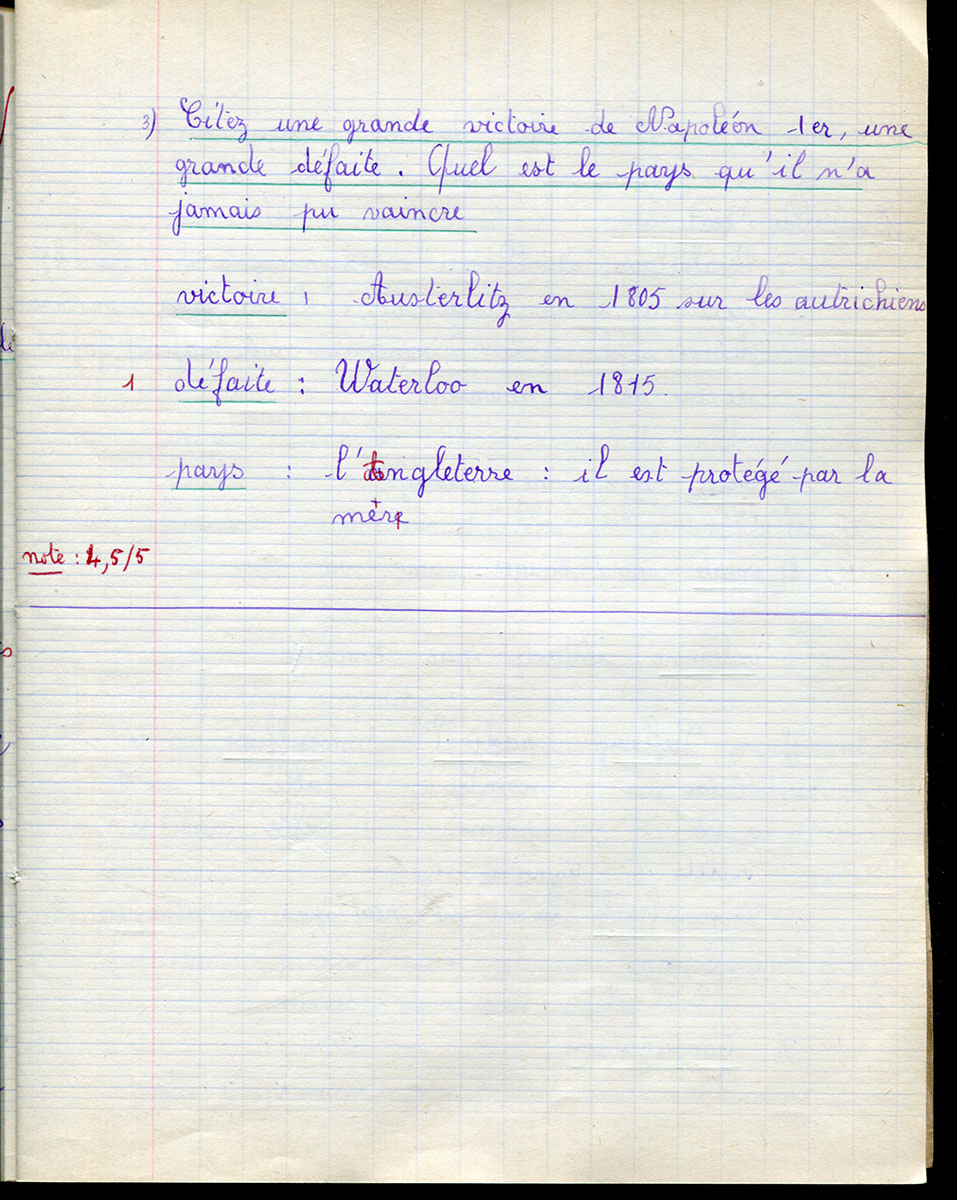 3) Citez une grande victoire de Napoléon 1er, une
grande défaite. Quel est le pays qu'il n'a
jamais pu vaincre
victoire : Austerlitz en 1805 sur les autrichiens
1 défaite : Waterloo en 1815.
pays : l'Angleterre : il est protégé par la
mer
note : 4,5/5